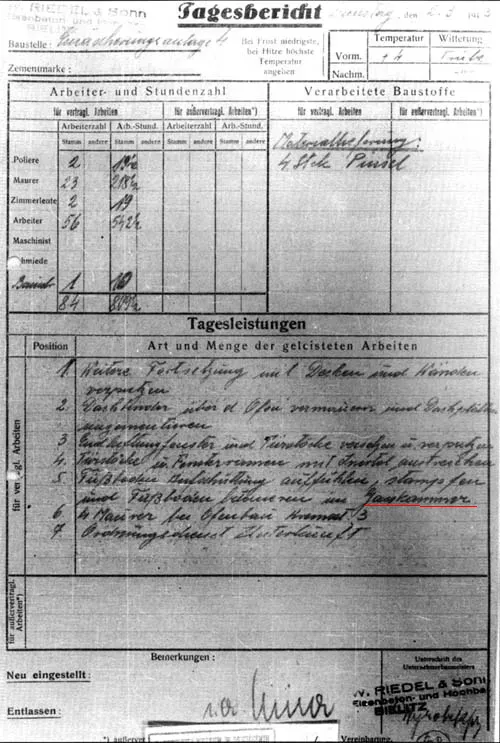 W. RIEDEL & SOHN
Eisenbeton- und Hochbau
BIELITZ
Tagesbericht
Dienstag, den 2. 3. 1943
Baustelle: Einäscherungsanlage 4
Zementmarke:
Bei Frost niedrigste,
bei Hitze höchste
Temperatur
angeben
Temperatur Witterung
Vorm. +4 Trübe
Nachm.
Arbeiter- und Stundenzahl
für vertragl. Arbeiten für außervertragl. Arbeiten*)
Arbeiterzahl Arb.-Stund. Arbeiterzahl Arb.-Stund.
Stamm andere Stamm andere Stamm andere Stamm andere
Poliere 2 19½
Maurer 23 218½
Zimmerleute 2 19
Arbeiter 56 542½
Maschinist
Schmiede
1 10
84 809½
Verarbeitete Baustoffe
für vertragl. Arbeiten für außervertragl. Arbeiten*)
Materiallieferung:
4 Stck Pinsel
Tagesleistungen
Position Art und Menge der geleisteten Arbeiten
für vertragl. Arbeiten
1. Weitere Fortsetzung mit Decken und Wänden
verputzen
2. über d. Ofen vermauern und
3 und Türstöcke versetzen u. verputzen
4. Türstöcke u. Fensterramen mit austreichen
5. Fußboden Aufschüttung auffühlen, stampfen
und Fußboden betonieren im Gasskammer
6 4 Maurer bei Ofenbau Kremat. 3
7. Ordnungsdienst Unterkunft
für außervertragl.
Arbeiten*)
Bemerkungen:
Neu eingestellt:
Entlassen:
Unterschrift des
Unterschachtbaumeisters
W. RIEDEL & SOHN
Eisenbeton- und Hochbau
BIELITZ
*) außerver
Vereinbarung.